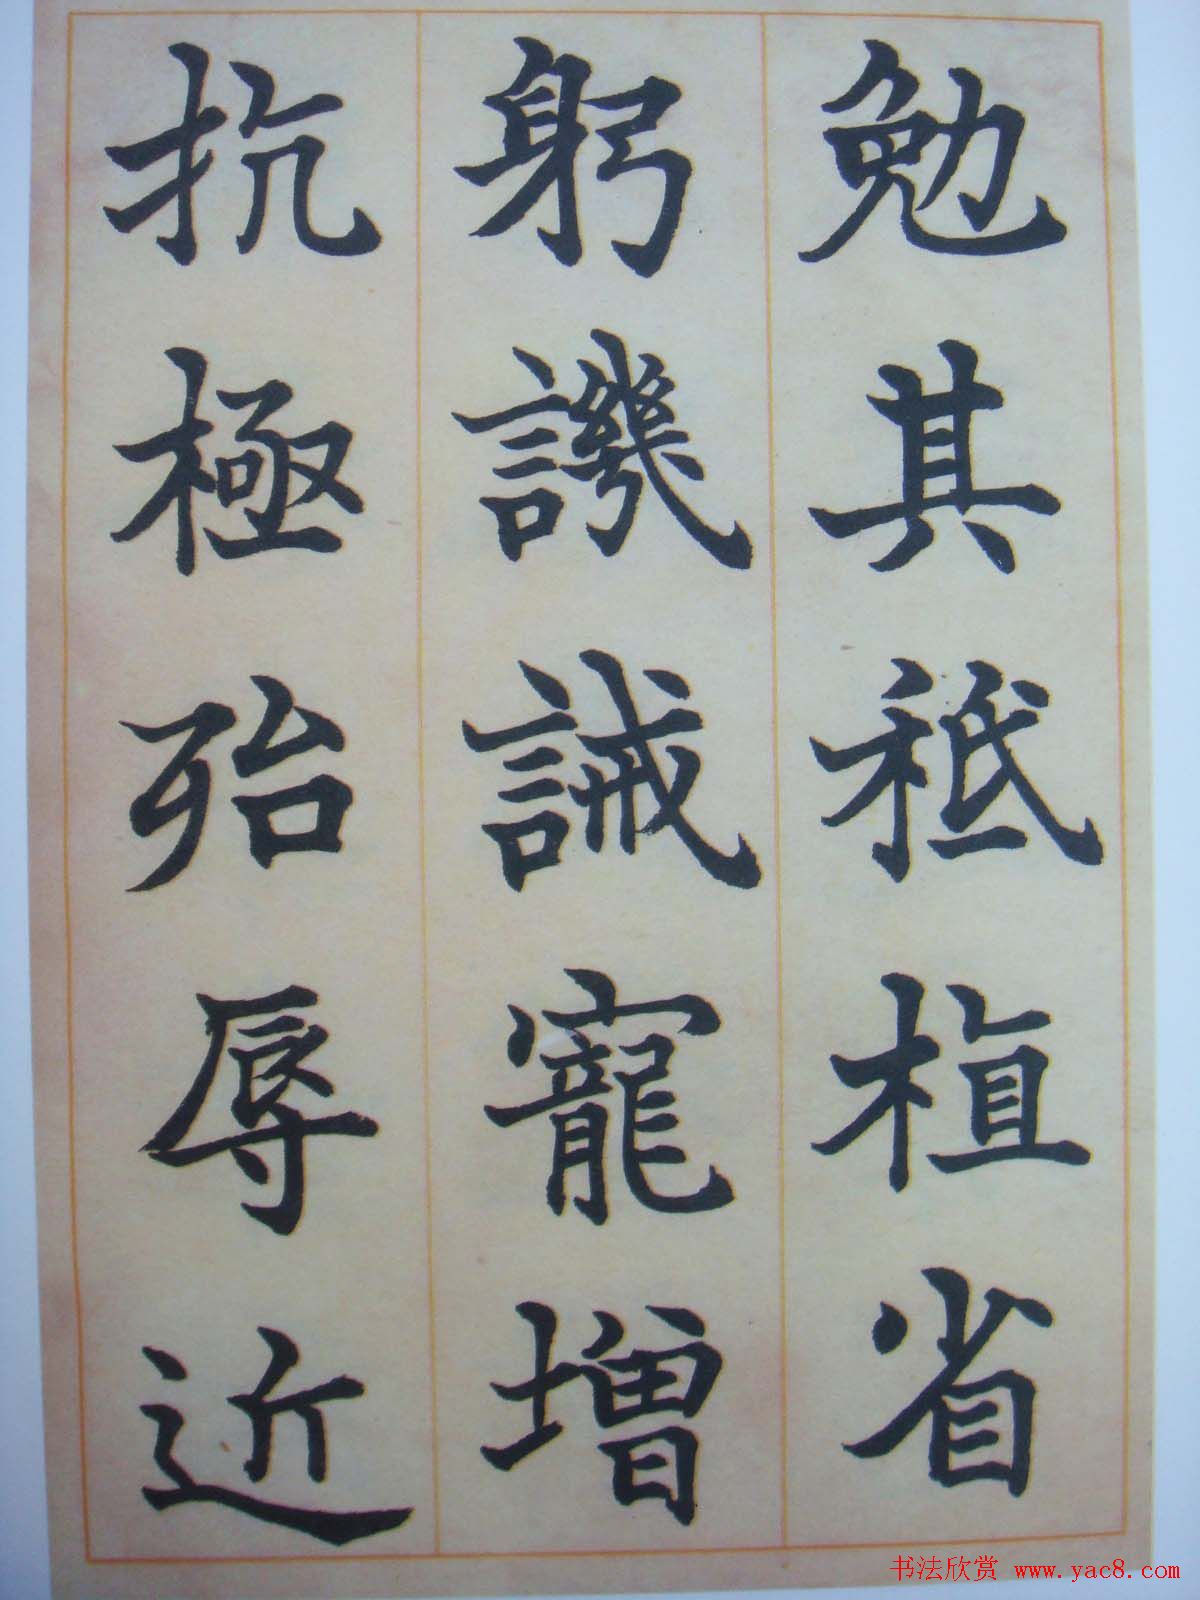 勉其祗植省
躬譏誡寵增
抗極殆辱近
书法欣赏 www.yac8.com